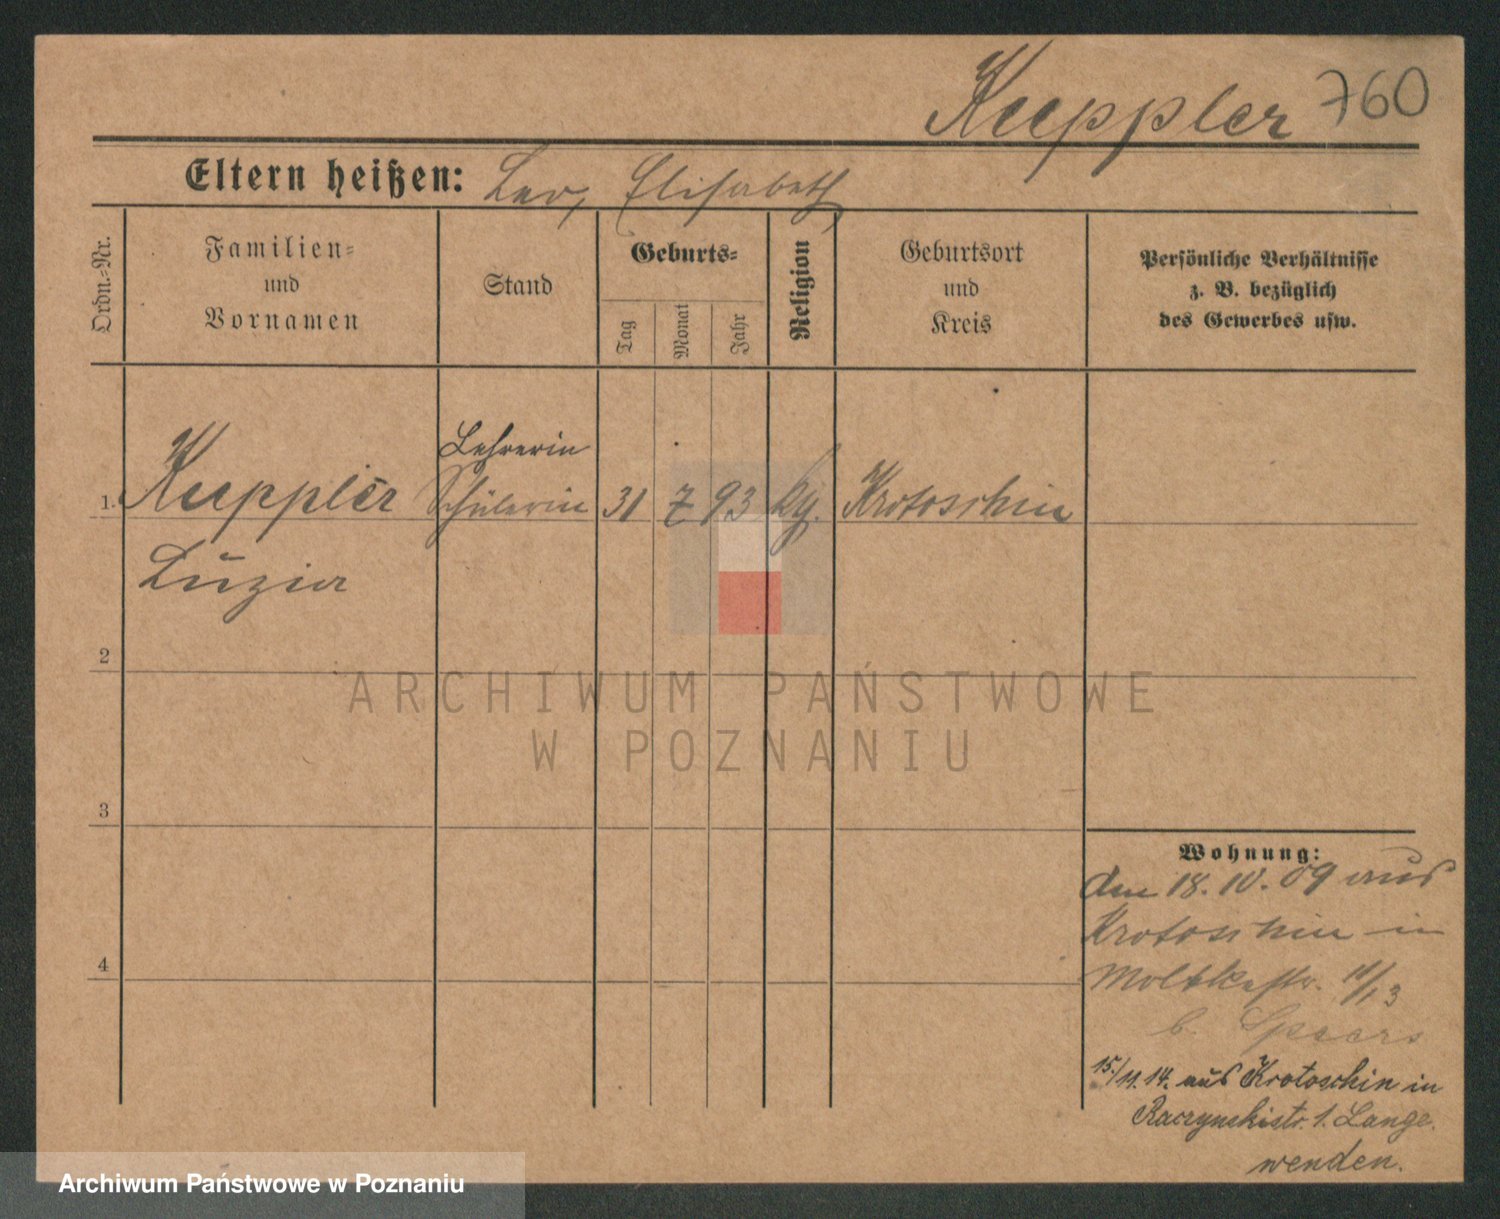 Keeppler 760
Eltern heißen: Leo, Elisabeth
Ordn.-Nr.
Familien-
und
Vornamen
Stand
Geburts-
Tag
Monat
Jahr
Religion
Geburtsort
und
Kreis
Persönliche Verhältnisse
z. B. bezüglich
des Gewerbes usw.
Lehrerin
1. Keeppler Schülerin 31 7 93 Krotoschin
Luzia
2
3
4
ARCHIWUM PAŃSTWOWE
W POZNANIU
Wohnung:
den 18. 10. 09 aus
Krotoschin in
Moltkestr.
b.
15./11. 14. aus Krotoschin in
Raczynskistr. 1. Lange.
wenden.
Archiwum Państwowe w Poznaniu